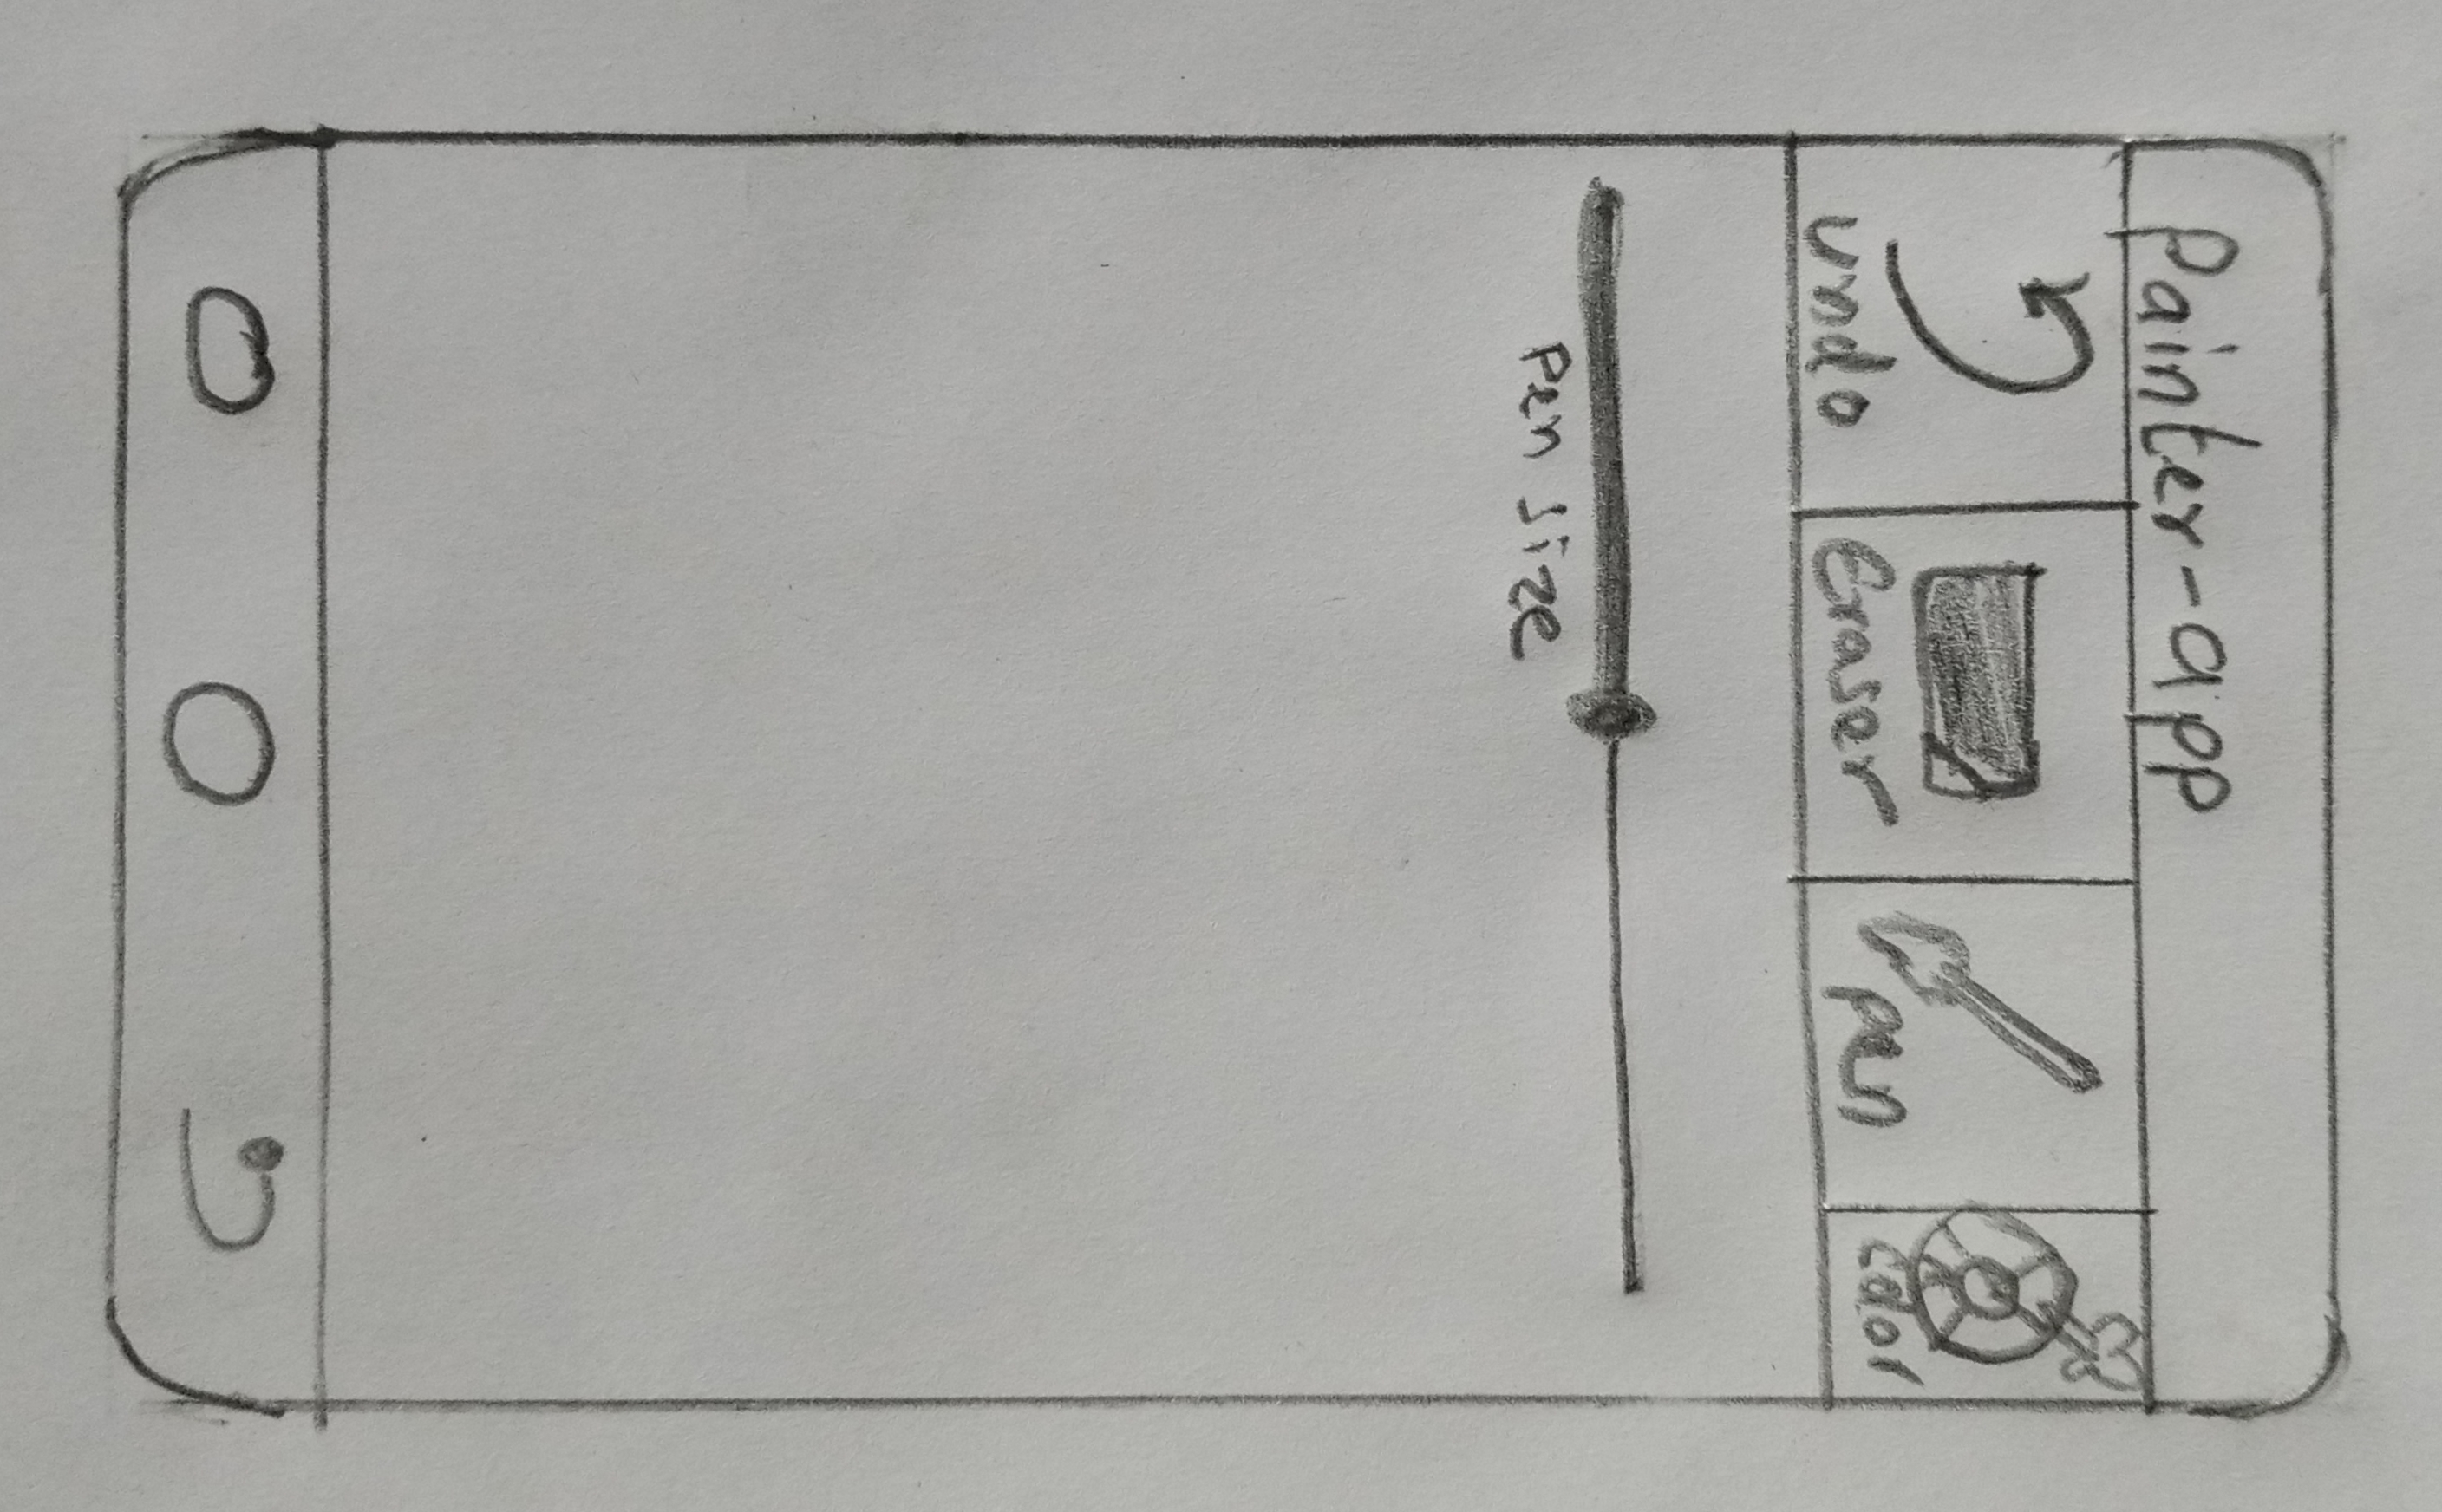 Painter-app
undo
Eraser
pen
color
Pen size